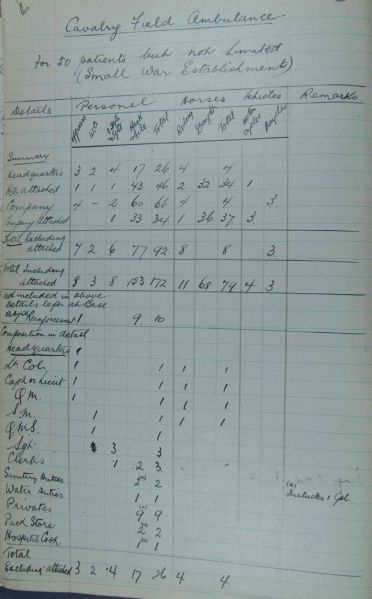 6
Cavalry Field Ambulance
For 50 patients but not Limited
(Small War Establishments)
Details Personel Horses Vehicles Remarks
Officers W.O. Rank & File Total Riding Draught Total Motor cycles Bicycles
Summary
Headquarters 3 2 4 17 26 4 4
attached 1 1 1 43 46 2 32 34 1
Company 4 - 2 60 66 4 4 3
Company Attached 1 33 34 1 36 37 3
Total Excluding
attached 7 2 6 77 92 8 8 3
Total Including
attached 8 3 8 153 172 11 68 79 4 3
not included in above
Details left at Base
Reinforcement 1 9 10
Composition in detail
Headquarters
Lt Col. 1 1 1 1
Capt or Lieut 1 1 1 1
Q.M. 1 1 1 1
S.M. 1 1 1 1
QMS. 1 1
Sgt. 3 3
Clerks 1 2 3
Sanitary Duties 2 2
Water Duties 1 1
(a) Includes 1 Cpl.
Privates 9 9
Pack Store 2 2
Hospital Cook. 1 1
Total
Excluding attached 3 2 4 17 26 4 4